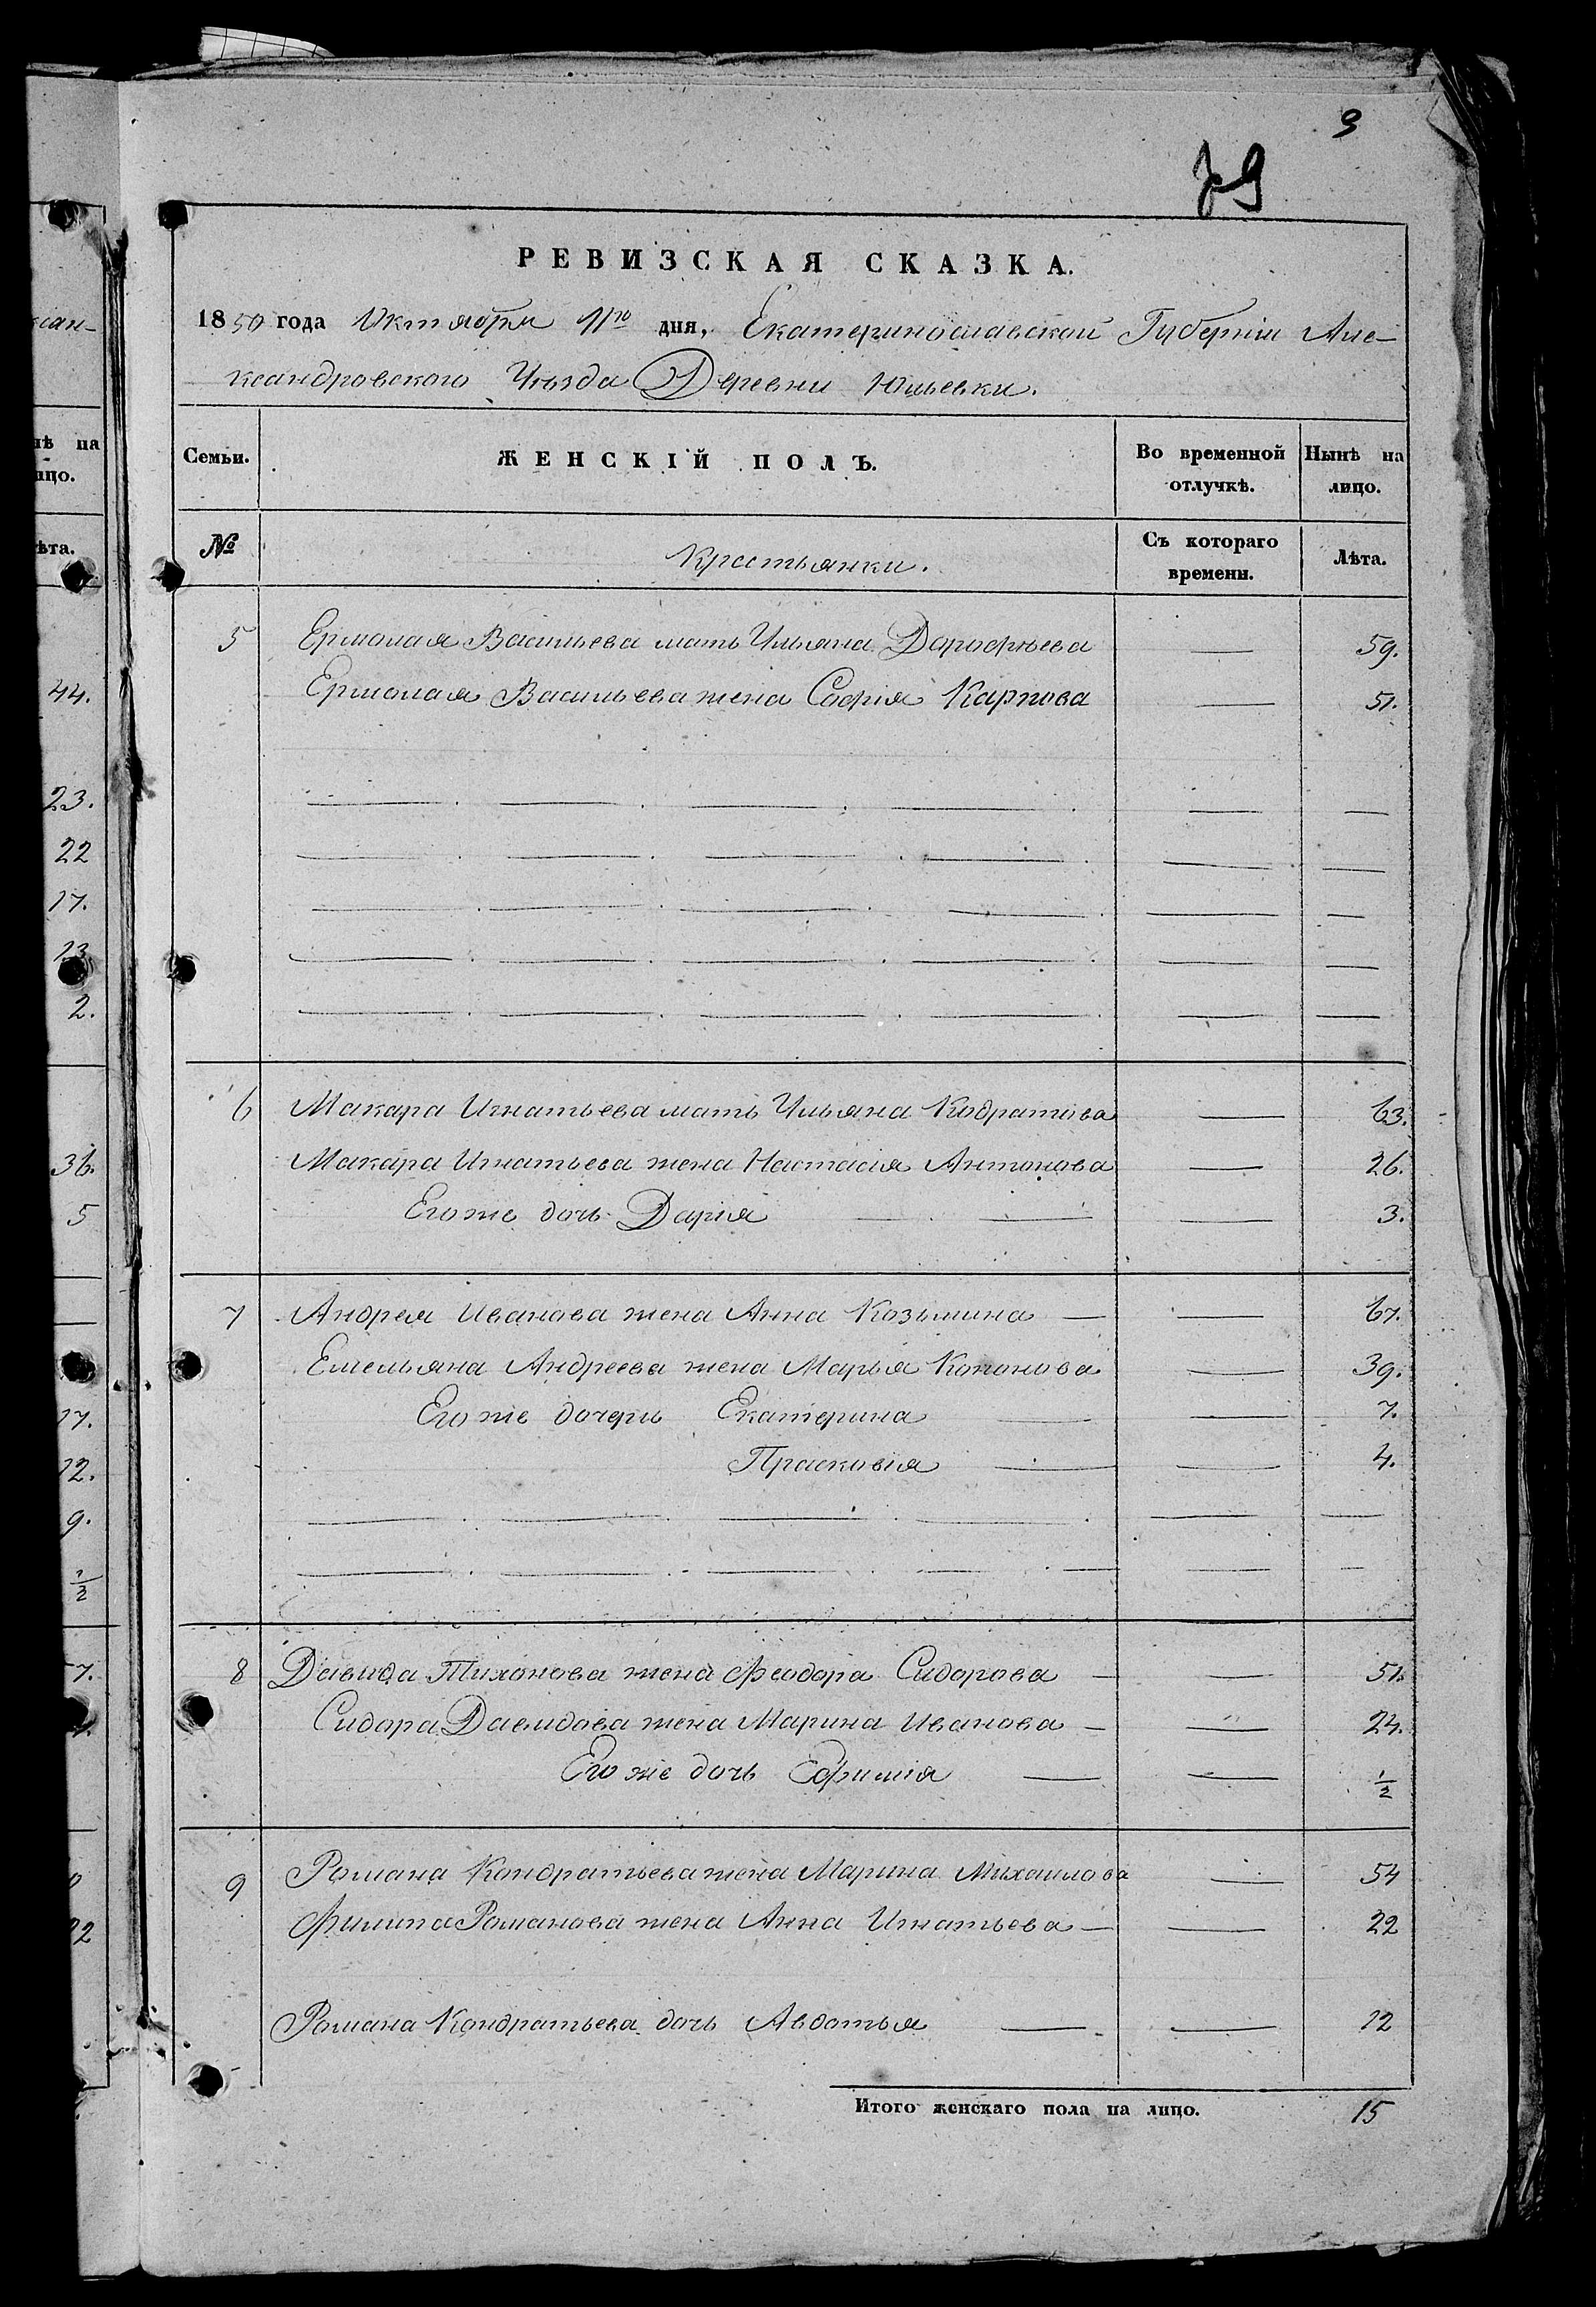 9
79
РЕВИЗСКАЯ СКАЗКА.
1850 года Октября 11го дня, Екатеринославской Губернiи Але-
ксандровского Уѣзда Деревни Юльевки.
Семьи. ЖЕНСКIЙ ПОЛЪ. Во временной отлучкѣ. Нынѣ на лицо.
№ Крестьянки. Съ котораго времени. Лѣта.
5 Ермолая Васильева мать Ульяна Дорофѣева — 59.
Ермолая Васильева жена Софiя Карпова — 51.
6 Макара Игнатьева мать Ульяна Кодратова — 63.
Макара Игнатьева жена Настасiя Антонова — 26.
Его же дочь Дарiя — 3.
7 Андрея Иванова жена Анна Козьмина — 67.
Емельяна Андреева жена Марья Кононова — 39.
Его же дочери Екатерина — 7.
Прасковiя — 4.
8 Давида Тихонова жена Феодора Сидорова — 51.
Сидора Давидова жена Марина Иванова — 24.
Его же дочь Ефимiя — ½
9 Романа Кондратьева жена Марина Михаилова — 54
Филипа Романова жена Анна Игнатьева — 22
Романа Кондратьева дочь Авдотья — 12
Итого женскаго пола на лицо. 15
ксан-
нѣ на
ицо.
ѣта.
44.
23.
22
17.
13
2.
36.
5
17.
12.
9.
½
7.
22